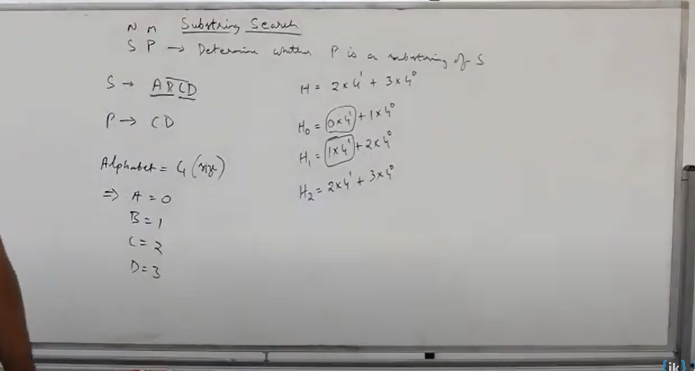 Substring Search
N M
S P → Determine whether P is a substring of S
S → ABCD
P → CD
Alphabet = 4 (size)
⇒ A = 0
B = 1
C = 2
D = 3
H = 2×4¹ + 3×4⁰
H₀ = 0×4¹ + 1×4⁰
H₁ = 1×4¹ + 2×4⁰
H₂ = 2×4¹ + 3×4⁰
ik